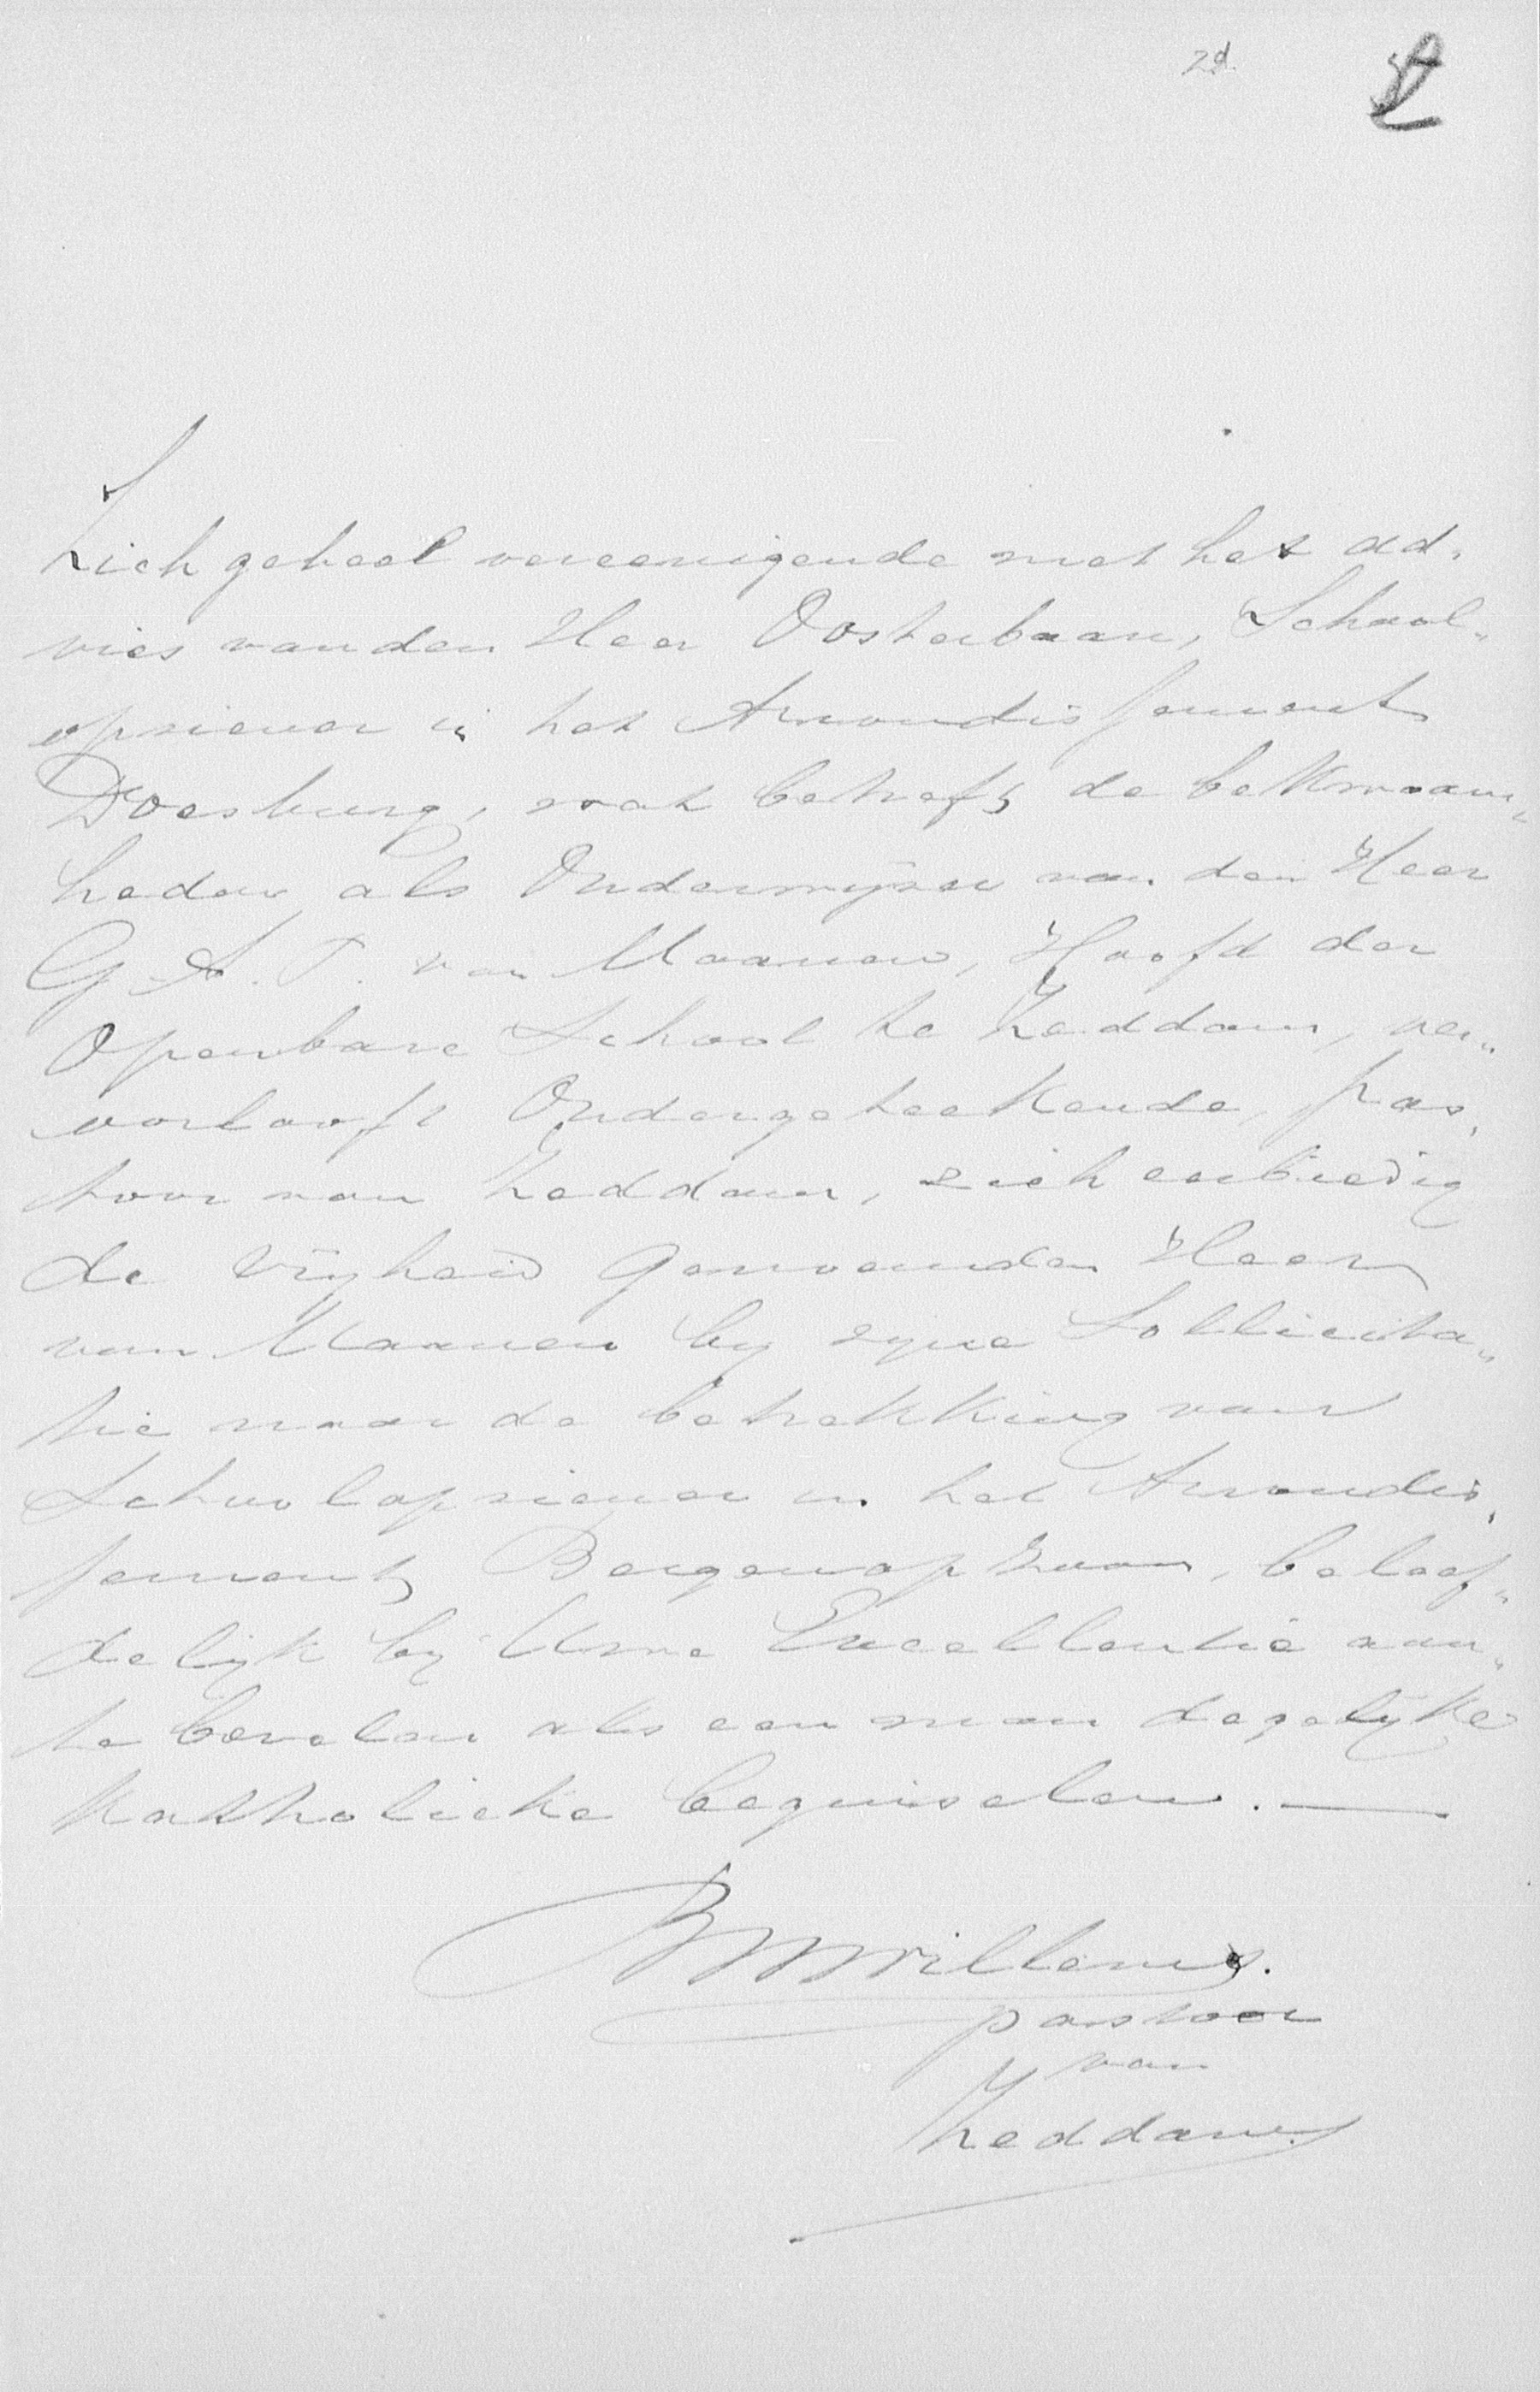 2d
Zich geheel vereenigende met het ad„
vies van den Heer Oosterbaan, School„
opziener in het Arrondissement
Doesburg, wat betreft de bekwaam„
heden als Onderwijzer van den Heer
G. A. P. van Maanen, Hoofd der
Openbare School te Zeddam, ver„
oorlooft Ondergeteekende, pas„
toor van Zeddam, zich eerbiedig
de vrijheid genoemden Heer
van Maanen bij zijne Sollicita„
tie naar de betrekking van
Schoolopziener in het Arrondis„
sement Bergen op Zoom, beleef„
delijk bij Uwe Excellentie aan„
te bevelen als een man degelijke
Katholieke beginselen.
Willems.
pastoor
van
Zeddam